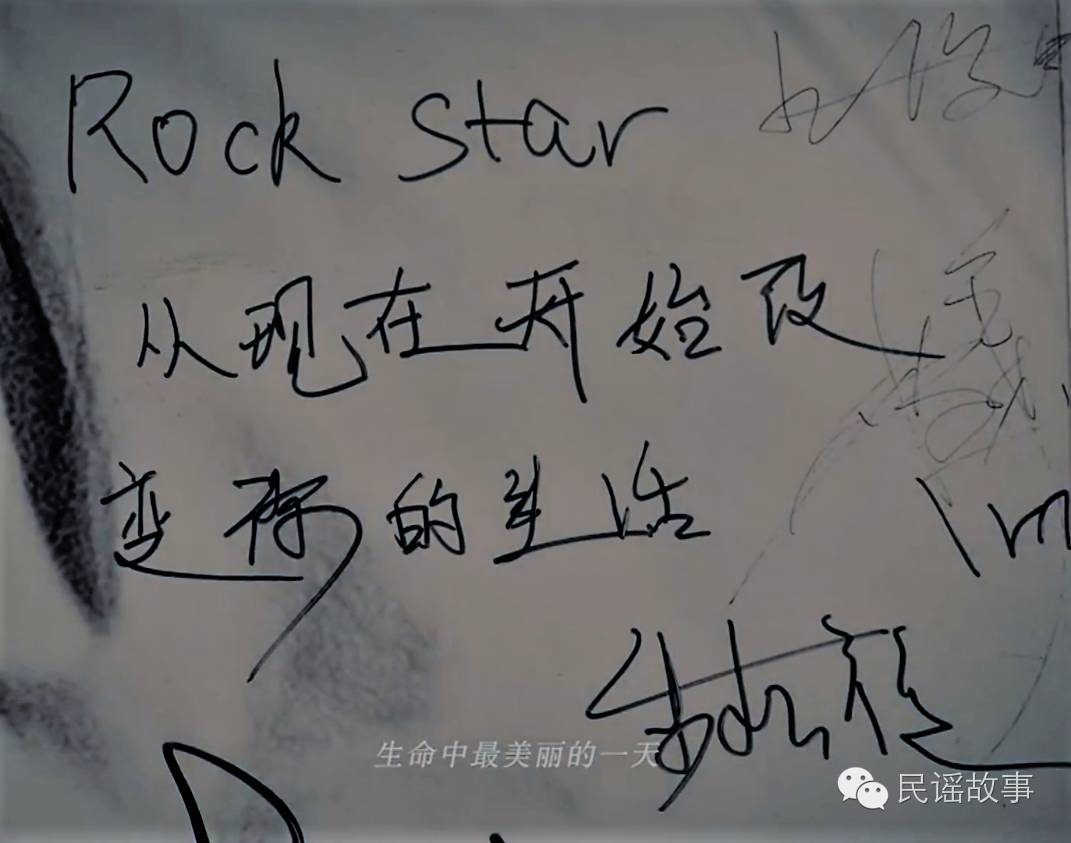 Rock Star
从现在开始改
变你的生活
生命中最美丽的一天
民谣故事